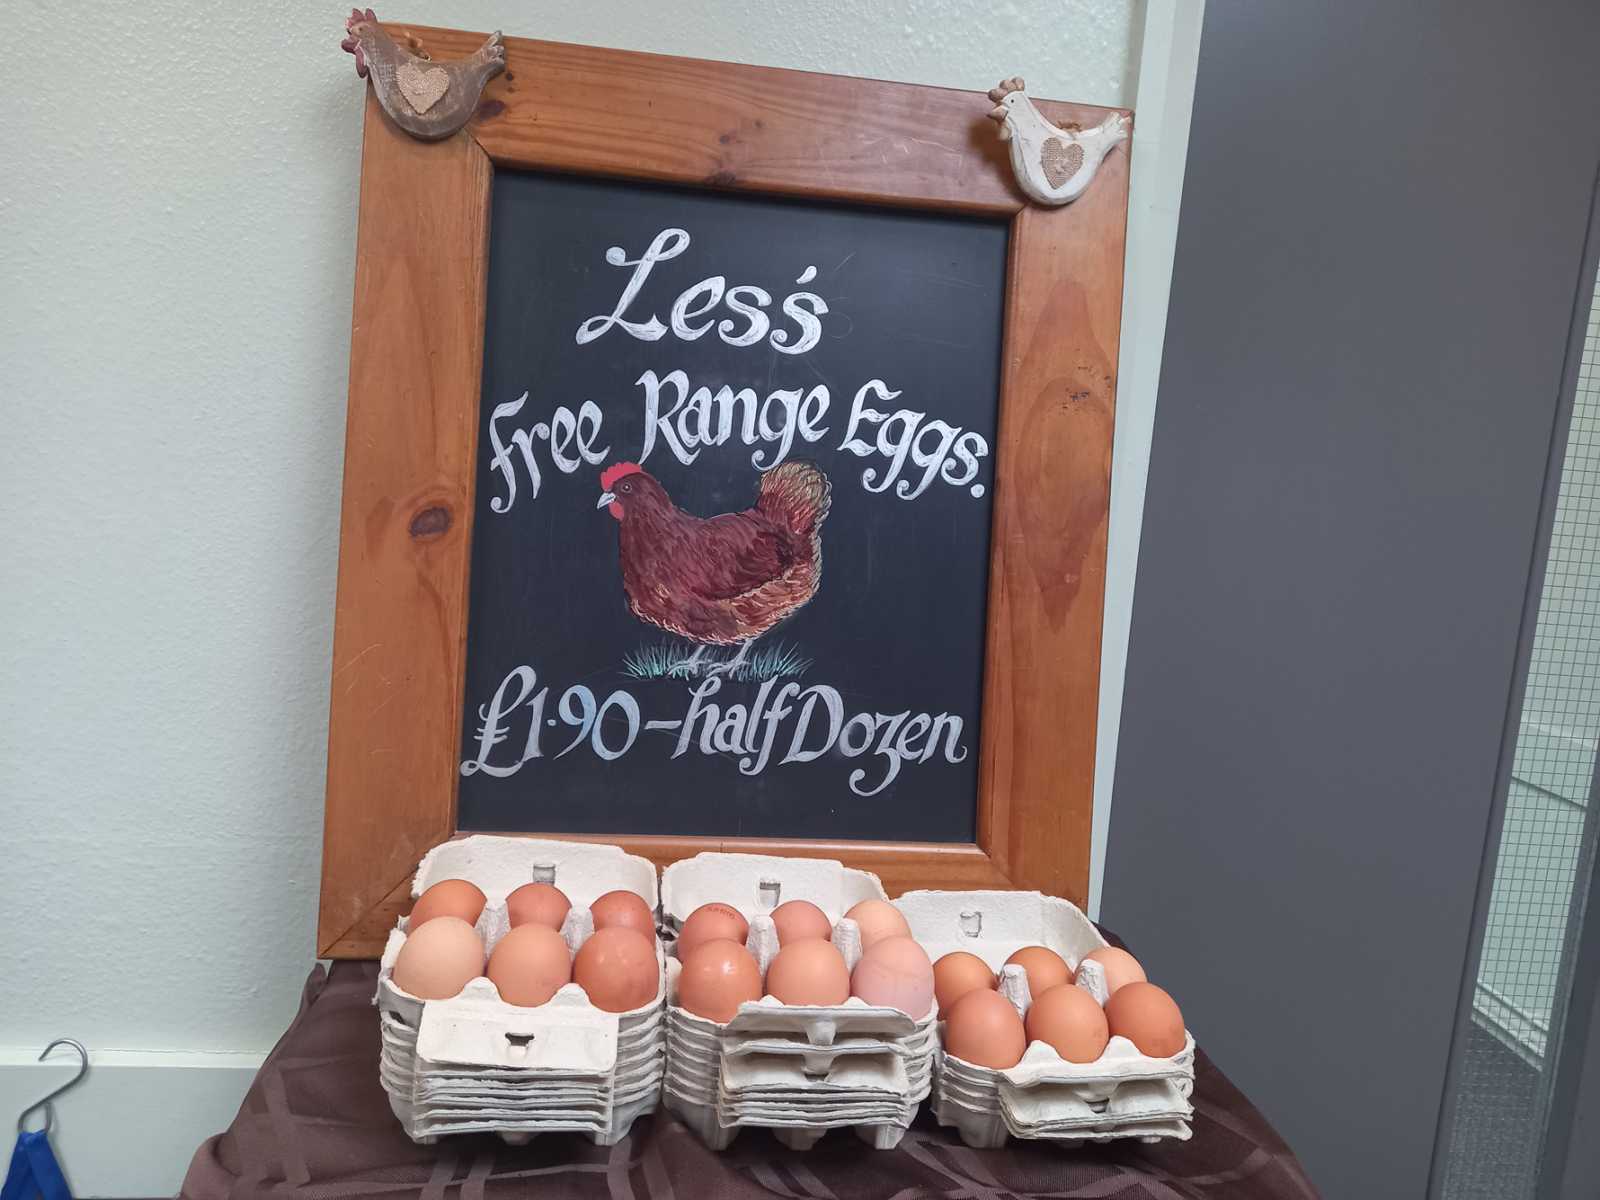 Les's
Free Range Eggs.
£1·90-half Dozen